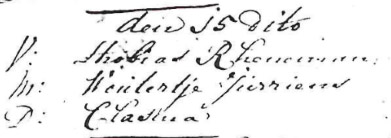 den 15 dito
V: Thobias Rheneman
M: Wendeltje Jurriens
D: Clasina